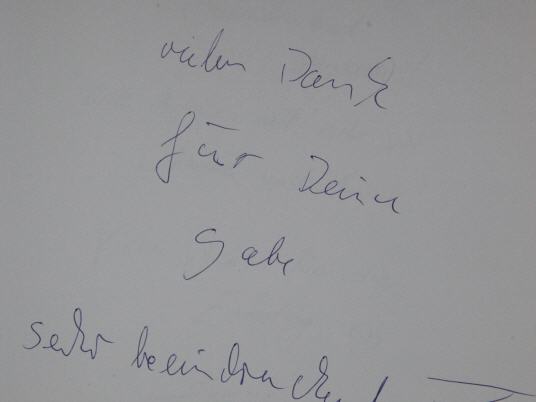 vielen Dank
für Deine
Gabe
sehr beeindruckend